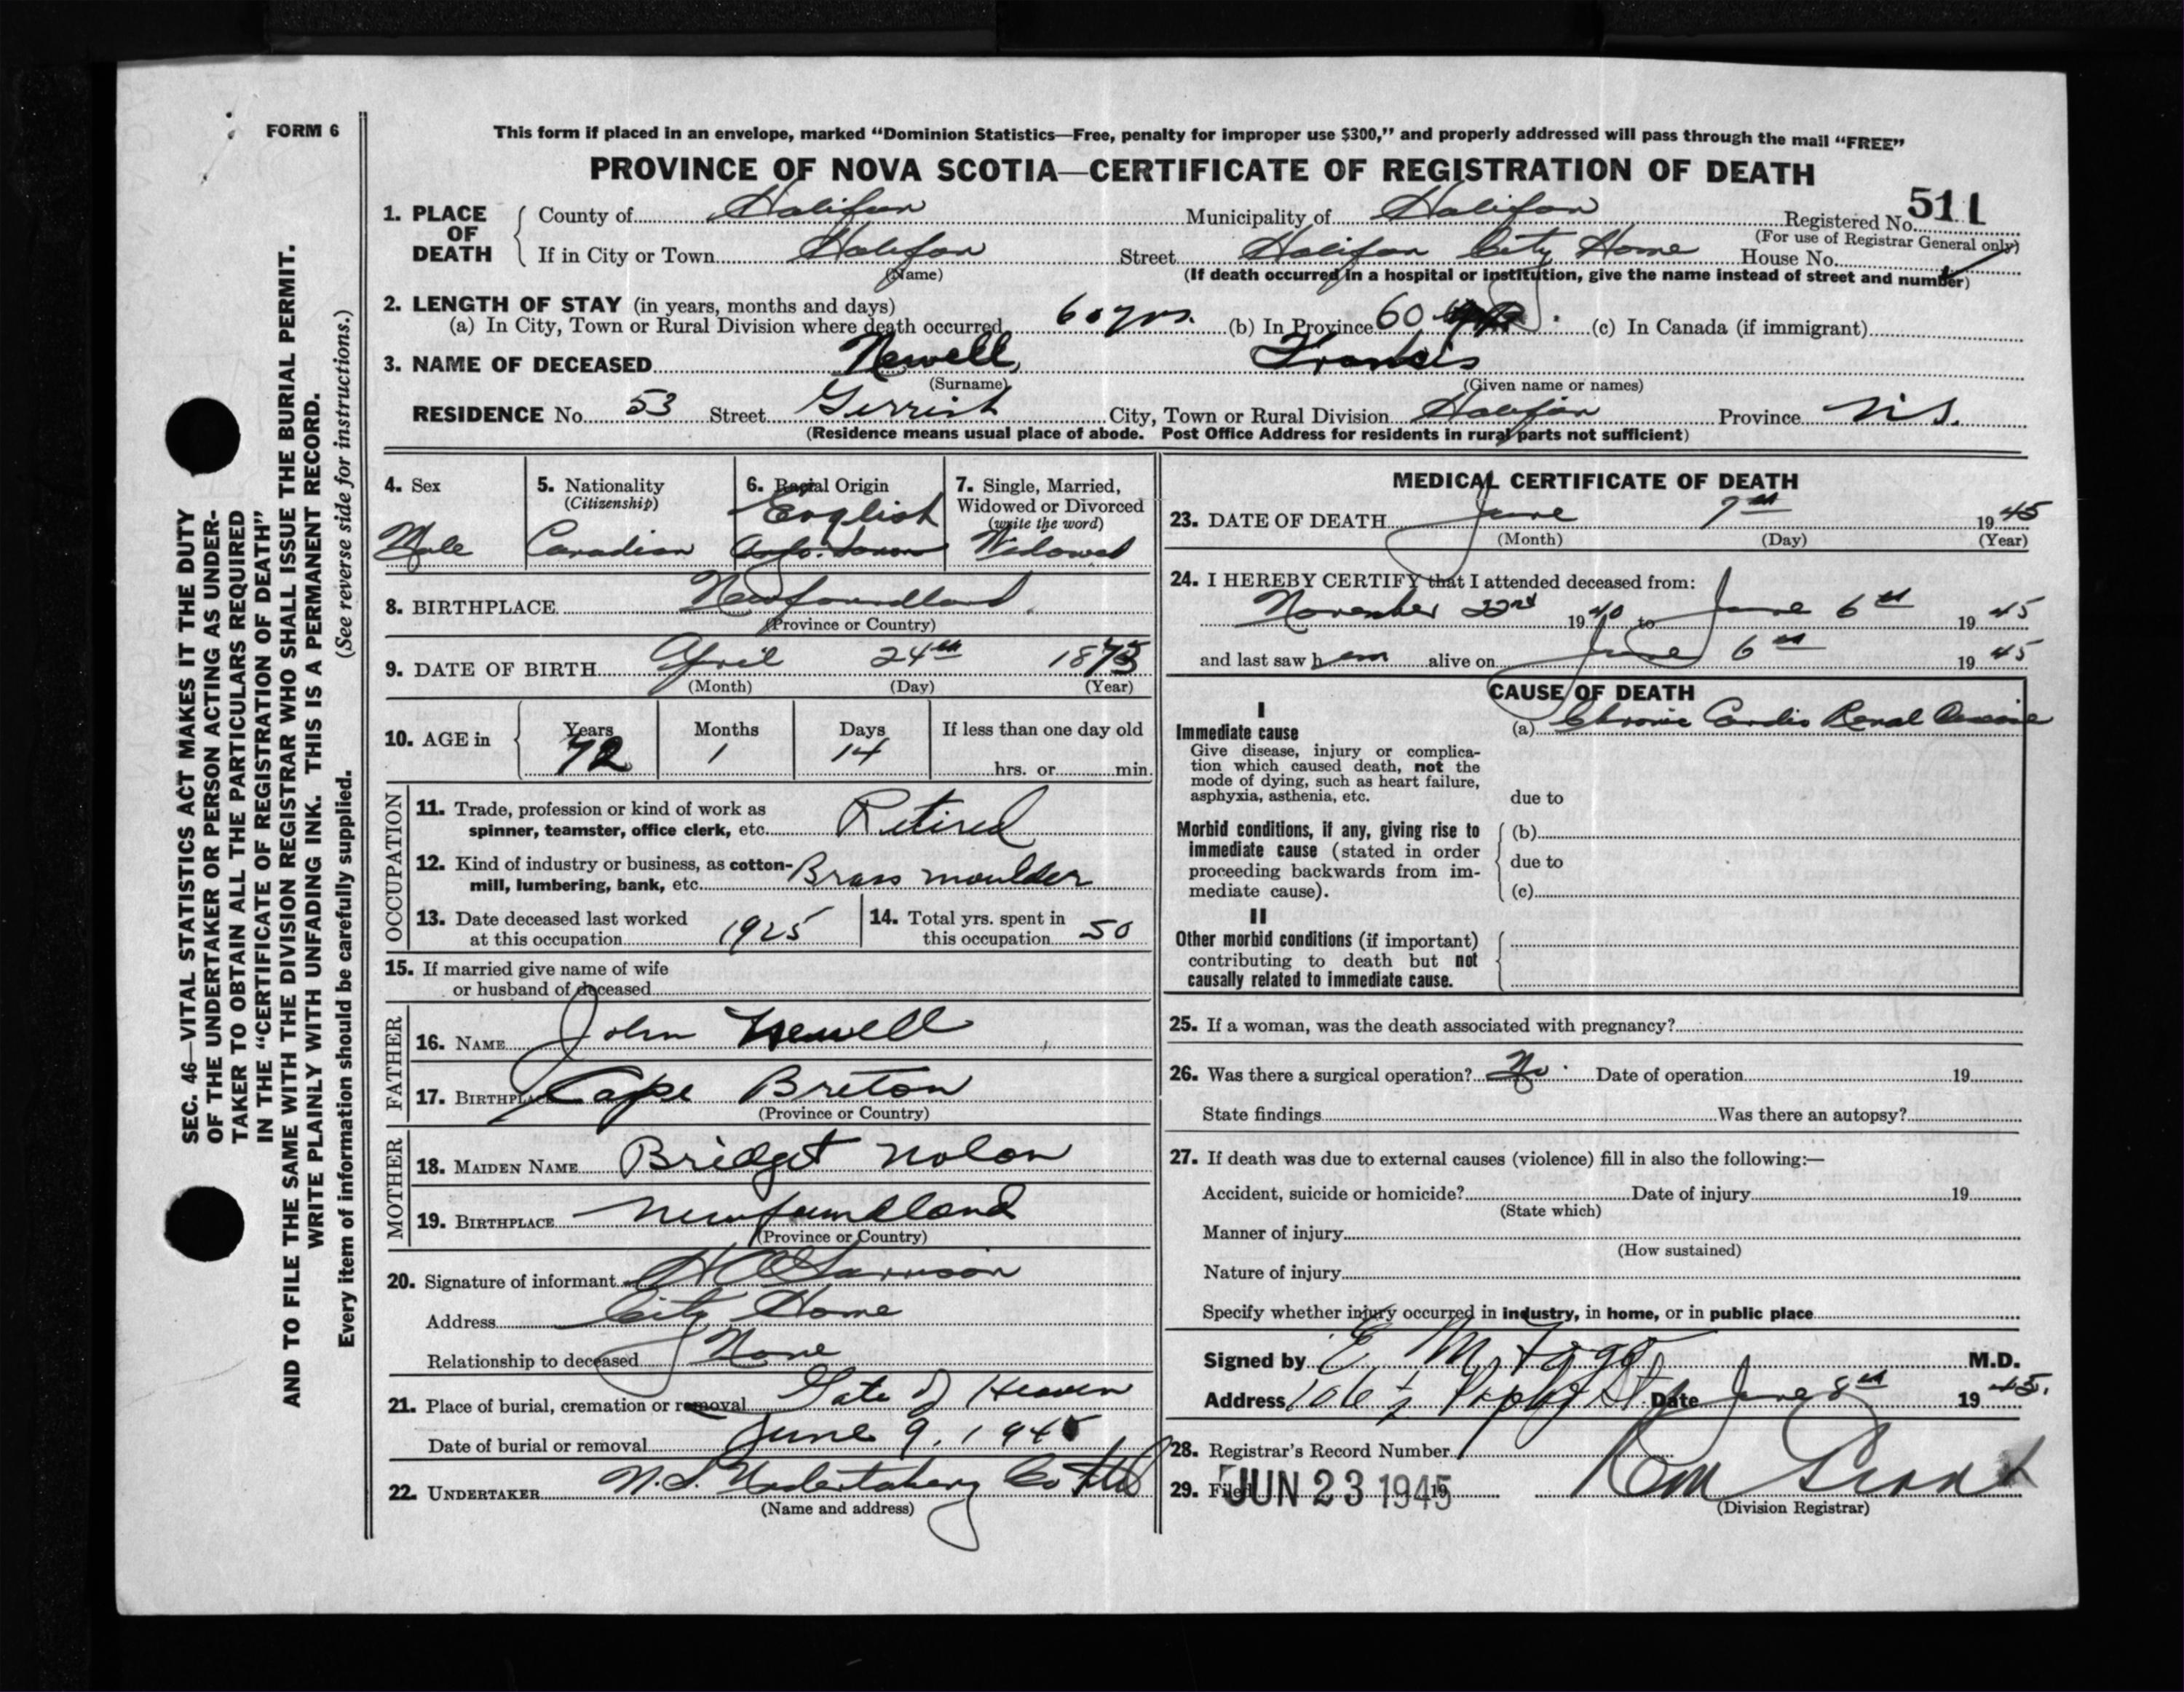 FORM 6
This form if placed in an envelope, marked “Dominion Statistics—Free, penalty for improper use $300,” and properly addressed will pass through the mail “FREE”
PROVINCE OF NOVA SCOTIA—CERTIFICATE OF REGISTRATION OF DEATH
1. PLACE OF DEATH
County of Halifax Municipality of Halifax Registered No. 511
(For use of Registrar General only)
If in City or Town Halifax Street Halifax City Home House No.
(Name) (If death occurred in a hospital or institution, give the name instead of street and number)
2. LENGTH OF STAY (in years, months and days)
(a) In City, Town or Rural Division where death occurred 60 yrs. (b) In Province 60 (c) In Canada (if immigrant)
3. NAME OF DECEASED Newell, Francis
(Surname) (Given name or names)
RESIDENCE No. 53 Street Gerrish City, Town or Rural Division Halifax Province N.S.
(Residence means usual place of abode. Post Office Address for residents in rural parts not sufficient)
4. Sex
Male
5. Nationality
(Citizenship)
Canadian
6. Racial Origin
English
Anglo-Saxon
7. Single, Married,
Widowed or Divorced
(write the word)
Widowed
8. BIRTHPLACE Newfoundland
(Province or Country)
9. DATE OF BIRTH April 24th 1873
(Month) (Day) (Year)
10. AGE in
Years Months Days If less than one day old
72 1 14
hrs. or min.
OCCUPATION
11. Trade, profession or kind of work as
spinner, teamster, office clerk, etc. Retired
12. Kind of industry or business, as cotton-
mill, lumbering, bank, etc. Brass moulder
13. Date deceased last worked
at this occupation 1925
14. Total yrs. spent in
this occupation 50
15. If married give name of wife
or husband of deceased
FATHER
16. NAME John Newell
17. BIRTHPLACE Cape Breton
(Province or Country)
MOTHER
18. MAIDEN NAME Bridget Nolan
19. BIRTHPLACE Newfoundland
(Province or Country)
20. Signature of informant
Address City Home
Relationship to deceased None
21. Place of burial, cremation or removal Gate of Heaven
Date of burial or removal June 9, 1945
22. UNDERTAKER N.S. Undertaking Co Ltd
(Name and address)
MEDICAL CERTIFICATE OF DEATH
23. DATE OF DEATH June 7th 1945
(Month) (Day) (Year)
24. I HEREBY CERTIFY that I attended deceased from:
November 22nd 1940 to June 6th 1945
and last saw him alive on June 6th 1945
CAUSE OF DEATH
I
Immediate cause
Give disease, injury or complica-
tion which caused death, not the
mode of dying, such as heart failure,
asphyxia, asthenia, etc.
(a) Chronic Cardio Renal Disease
due to
Morbid conditions, if any, giving rise to
immediate cause (stated in order
proceeding backwards from im-
mediate cause).
(b)
due to
(c)
II
Other morbid conditions (if important)
contributing to death but not
causally related to immediate cause.
25. If a woman, was the death associated with pregnancy?
26. Was there a surgical operation? No. Date of operation 19
State findings Was there an autopsy?
27. If death was due to external causes (violence) fill in also the following:—
Accident, suicide or homicide? Date of injury 19
(State which)
Manner of injury
(How sustained)
Nature of injury
Specify whether injury occurred in industry, in home, or in public place
Signed by E. M. Fogo M.D.
Address 106½ St. Date June 8th 1945.
28. Registrar’s Record Number
29. Filed JUN 23 1945 19
(Division Registrar)
SEC. 46—VITAL STATISTICS ACT MAKES IT THE DUTY
OF THE UNDERTAKER OR PERSON ACTING AS UNDER-
TAKER TO OBTAIN ALL THE PARTICULARS REQUIRED
IN THE “CERTIFICATE OF REGISTRATION OF DEATH”
AND TO FILE THE SAME WITH THE DIVISION REGISTRAR WHO SHALL ISSUE THE BURIAL PERMIT.
WRITE PLAINLY WITH UNFADING INK. THIS IS A PERMANENT RECORD.
Every item of information should be carefully supplied. (See reverse side for instructions.)